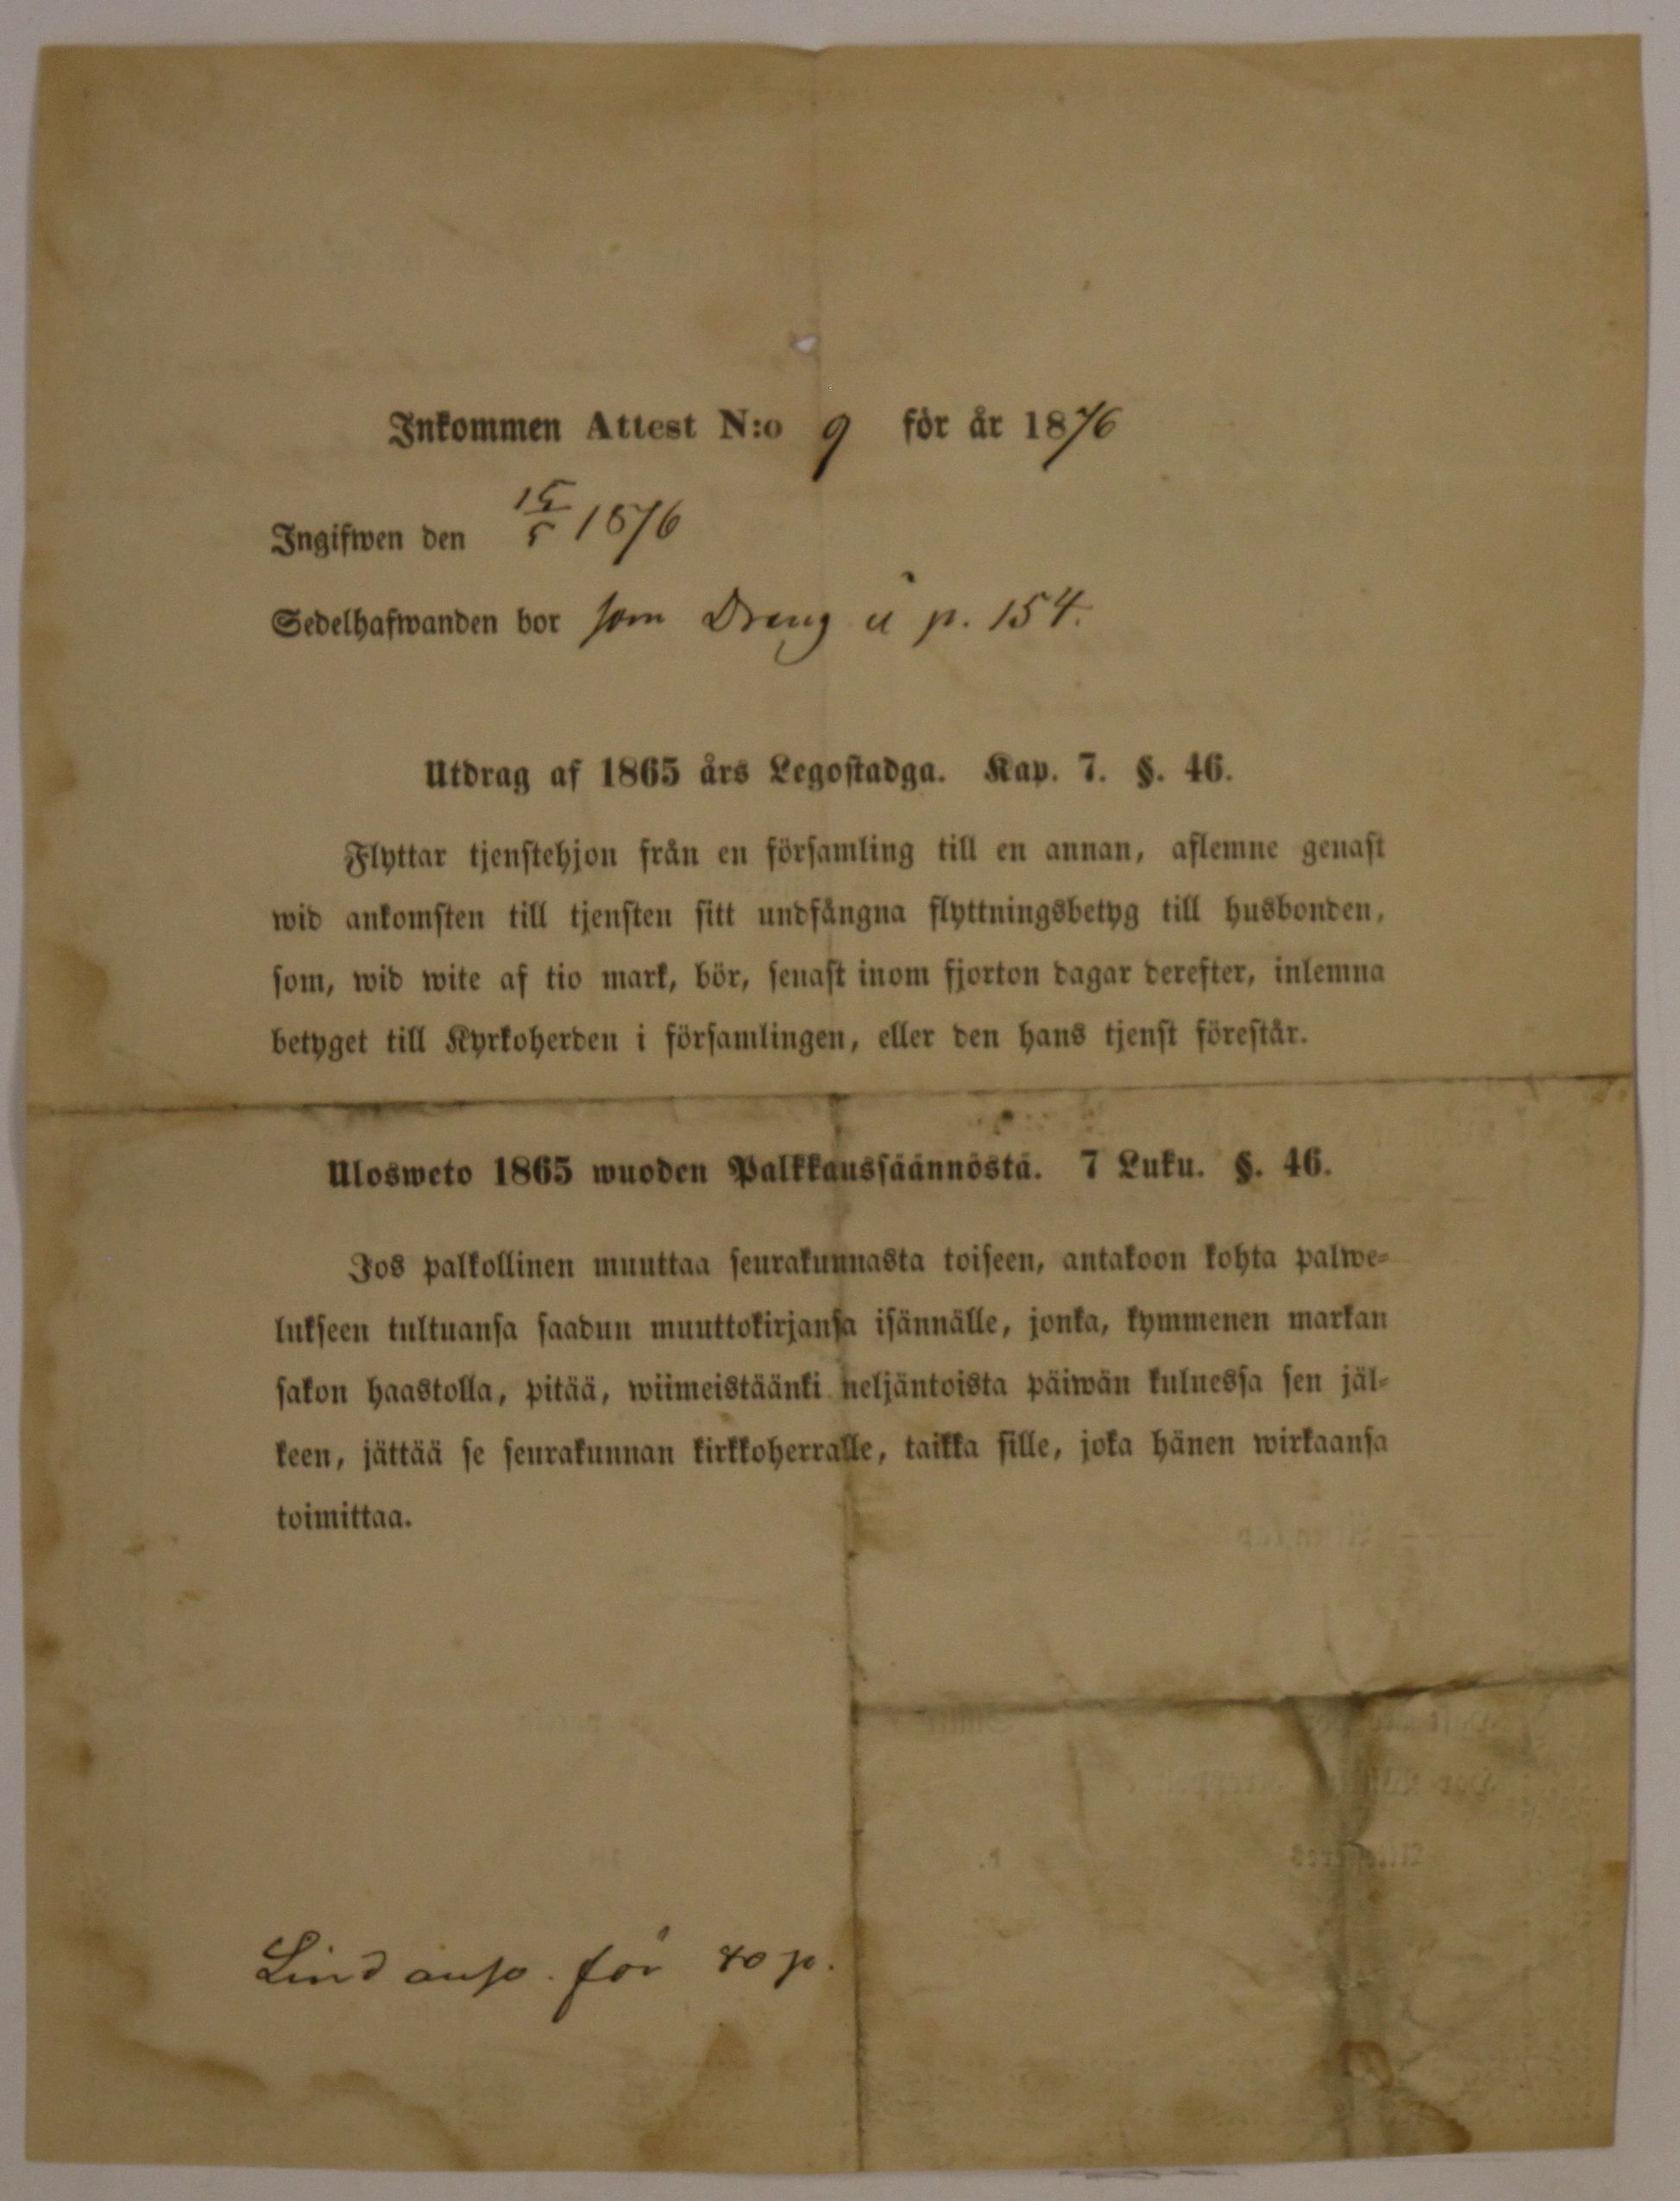 Inkommen Attest N:o 9 för år 1876
Ingifwen den 15/5 1876
Sedelhafwanden bor som Dreng å p. 154.
Utdrag af 1865 års Legostadga. Kap. 7. §. 46.
Flyttar tjenstehjon från en församling till en annan, aflemne genast
wid ankomsten till tjensten sitt undfångna flyttningsbetyg till husbonden,
som, wid wite af tio mark, bör, senast inom fjorton dagar derefter, inlemna
betyget till Kyrkoherden i församlingen, eller den hans tjenst förestår.
Ulosweto 1865 wuoden Palkkaussäännöstä. 7 Luku. §. 46.
Jos palkollinen muuttaa seurakunnasta toiseen, antakoon kohta palwe-
lukseen tultuansa saadun muuttokirjansa isännälle, jonka, kymmenen markan
sakon haastolla, pitää, wiimeistäänki neljäntoista päiwän kuluessa sen jäl-
keen, jättää se seurakunnan kirkkoherralle, taikka sille, joka hänen wirkaansa
toimittaa.
Lind för 40 p.